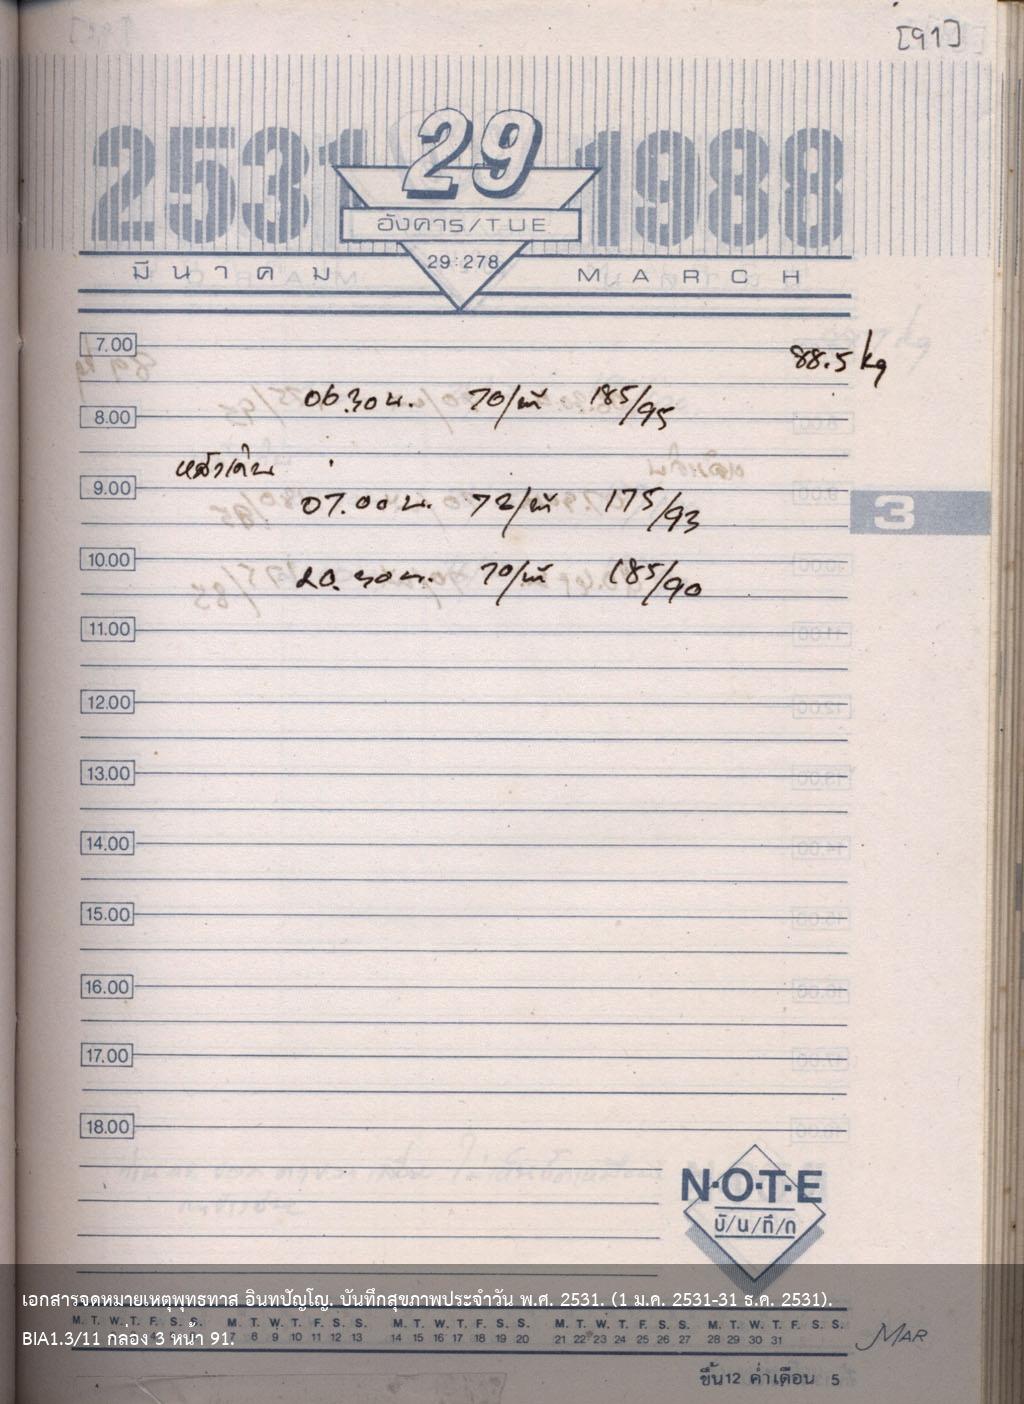 [91]
2531 29 1988
อังคาร/TUE
29:278
มีนาคม MARCH
7.00
88.5 kg
06.30 น. 70/นาที 185/95
8.00
หลังเดิน
9.00
07.00 น. 72/นาที 175/93
3
10.00
20.30 น. 70/นาที 185/90
11.00
12.00
13.00
14.00
15.00
16.00
17.00
18.00
N·O·T·E
บั/น/ทึ/ก
เอกสารจดหมายเหตุพุทธทาส อินทปัญโญ. บันทึกสุขภาพประจำวัน พ.ศ. 2531. (1 ม.ค. 2531-31 ธ.ค. 2531).
M. T. W. T. F. S. S. M. T. W. T. F. S. S. M. T. W. T. F. S. S. M. T. W. T. F. S. S. M. T. W. T. F. S. S.
BIA1.3/11 กล่อง 3 หน้า 91.
7 8 9 10 11 12 13 14 15 16 17 18 19 20 21 22 23 24 25 26 27 28 29 30 31
MAR
ขึ้น12 ค่ำเดือน 5